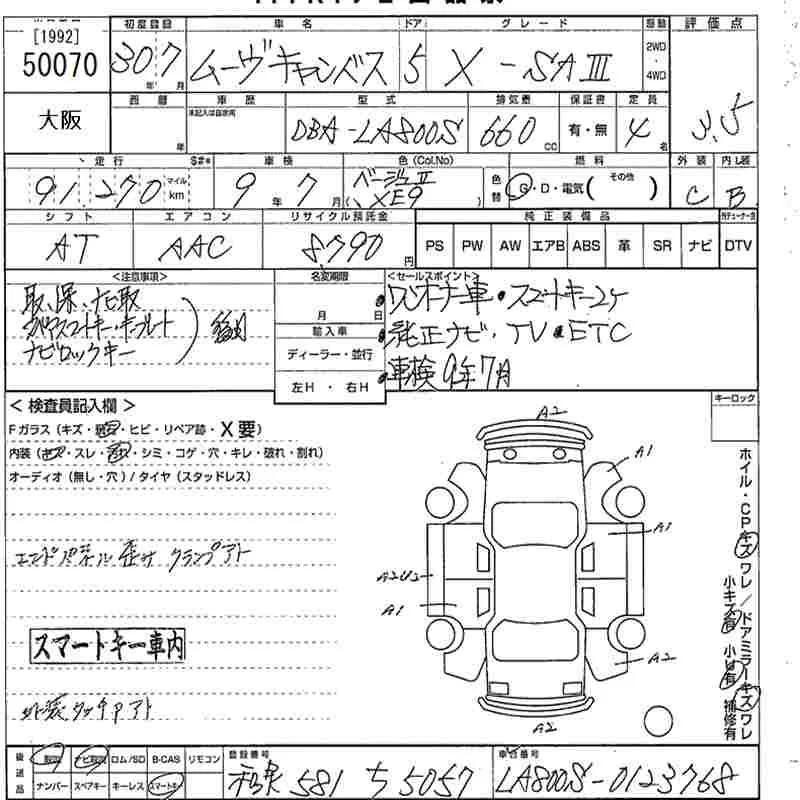 [1992]
50070
初度登録 車名 ドア グレード 駆動 評価点
30年 7月 ムーヴキャンバス 5 X-SAIII 2WD・4WD 3.5
大阪
車歴 型式 排気量 保証書 定員
未記入は自家用
年 DBA-LA800S 660cc 有・無 4名
走行 S#* 車検 色(Col.No) 燃料 外装 内装
91,270 マイル km 9年 7月 ベージュII (XE9) 色替 G・D・電気( その他 ) C B
シフト エアコン リサイクル預託金 純正装備品
AT AAC 8,790円 PS PW AW エアB ABS 革 SR ナビ DTV
<注意事項> 名変期限 <セールスポイント>
取、保、ナビ取
ナビロックキー
月 日
輸入車
ディーラー・並行
左H・右H
ワンオーナー車・スマートキー2ケ
純正ナビ・TV・ETC
車検9年7月
<検査員記入欄> キーロック
Fガラス(キズ・・ヒビ・リペア跡・X要)
内装(キズ・スレ・汚れ・シミ・コゲ・穴・キレ・破れ・割れ)
オーディオ(無し・穴)/タイヤ(スタッドレス)
エンドパネル歪み クランプアト
スマートキー車内
外装タッチアト
A2
A1
A1
A2U2
A1
A2
A2
ホイル・CPキズワレ/ドアミラーキズワレ
小キズ有 小U有 補修有
後送品 取説 ナビ取説 ロム/SD B-CAS リモコン 登録番号 車台番号
ナンバー スペアキー キーレス スマートキー 和泉 581 ち 5057 LA800S-0123768